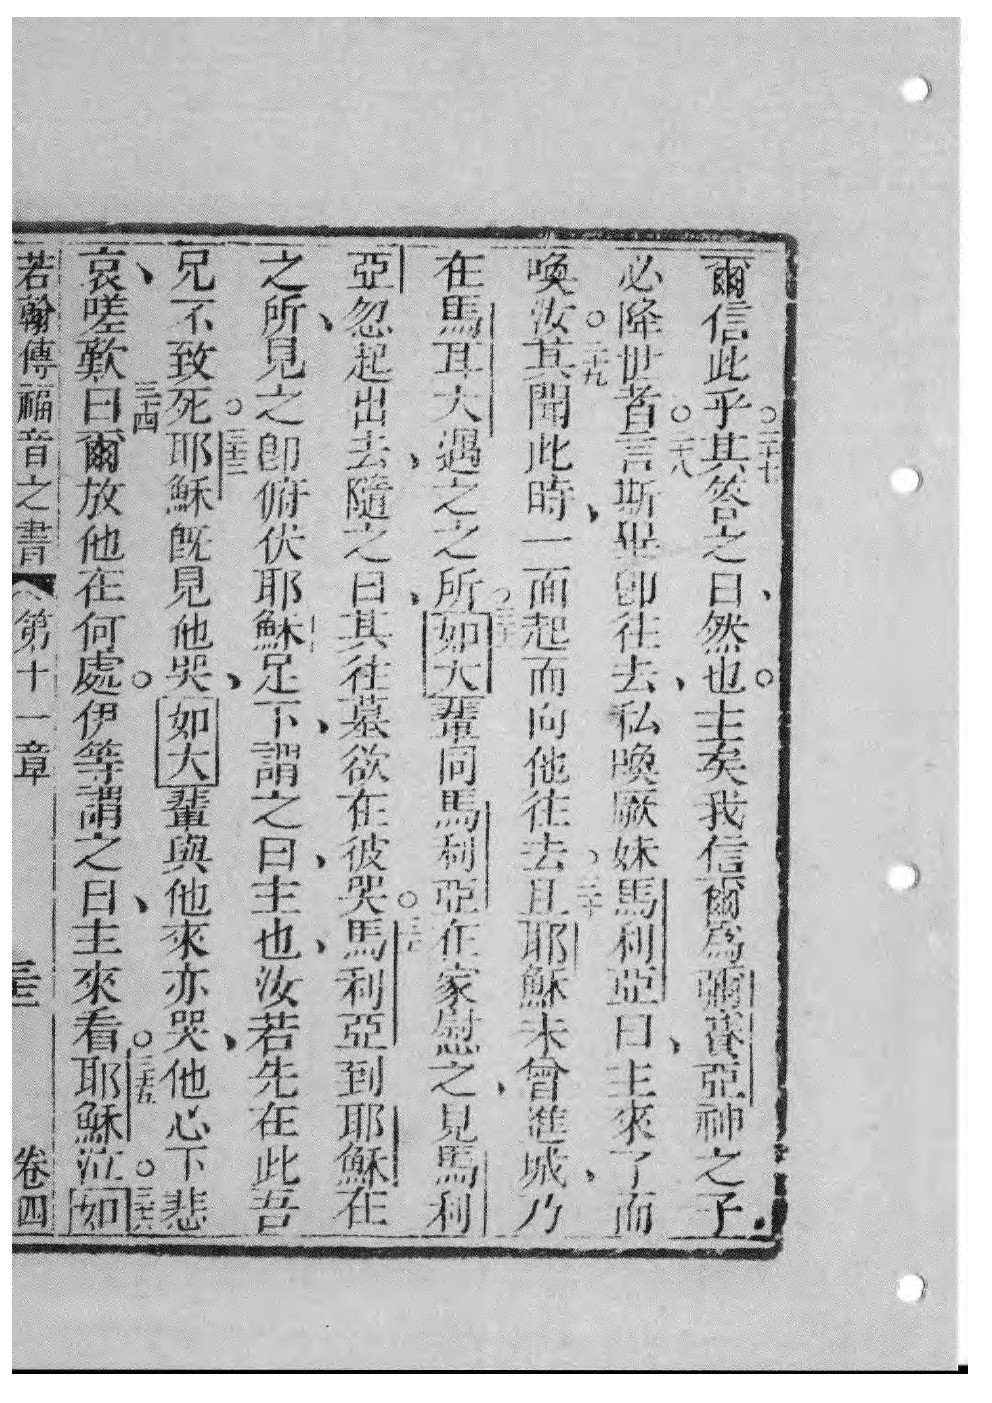 爾信此乎○二十七其答之曰、然也○主矣我信爾為彌賽亞神之子、
必降世者○二十八言斯畢卽往去、私喚厥妹馬利亞曰、主來了而
喚汝○二十九其聞此時、一面起而向他往去○三十且耶穌未曾進城、乃
在馬耳大遇之之所○三十一如大輩同馬利亞在家慰之、見馬利
亞忽起出去、隨之曰、其往墓欲在彼哭○三十二馬利亞到耶穌在
之所、見之卽俯伏耶穌足下、謂之曰、主也、汝若先在此吾
兄不致死○三十三耶穌旣見他哭、如大輩與他來亦哭、他心下悲
哀、嗟歎三十四曰爾放他在何處○伊等謂之曰、主來看○三十五耶穌泣○三十六如
若翰傳福音之書 第十一章 卷四